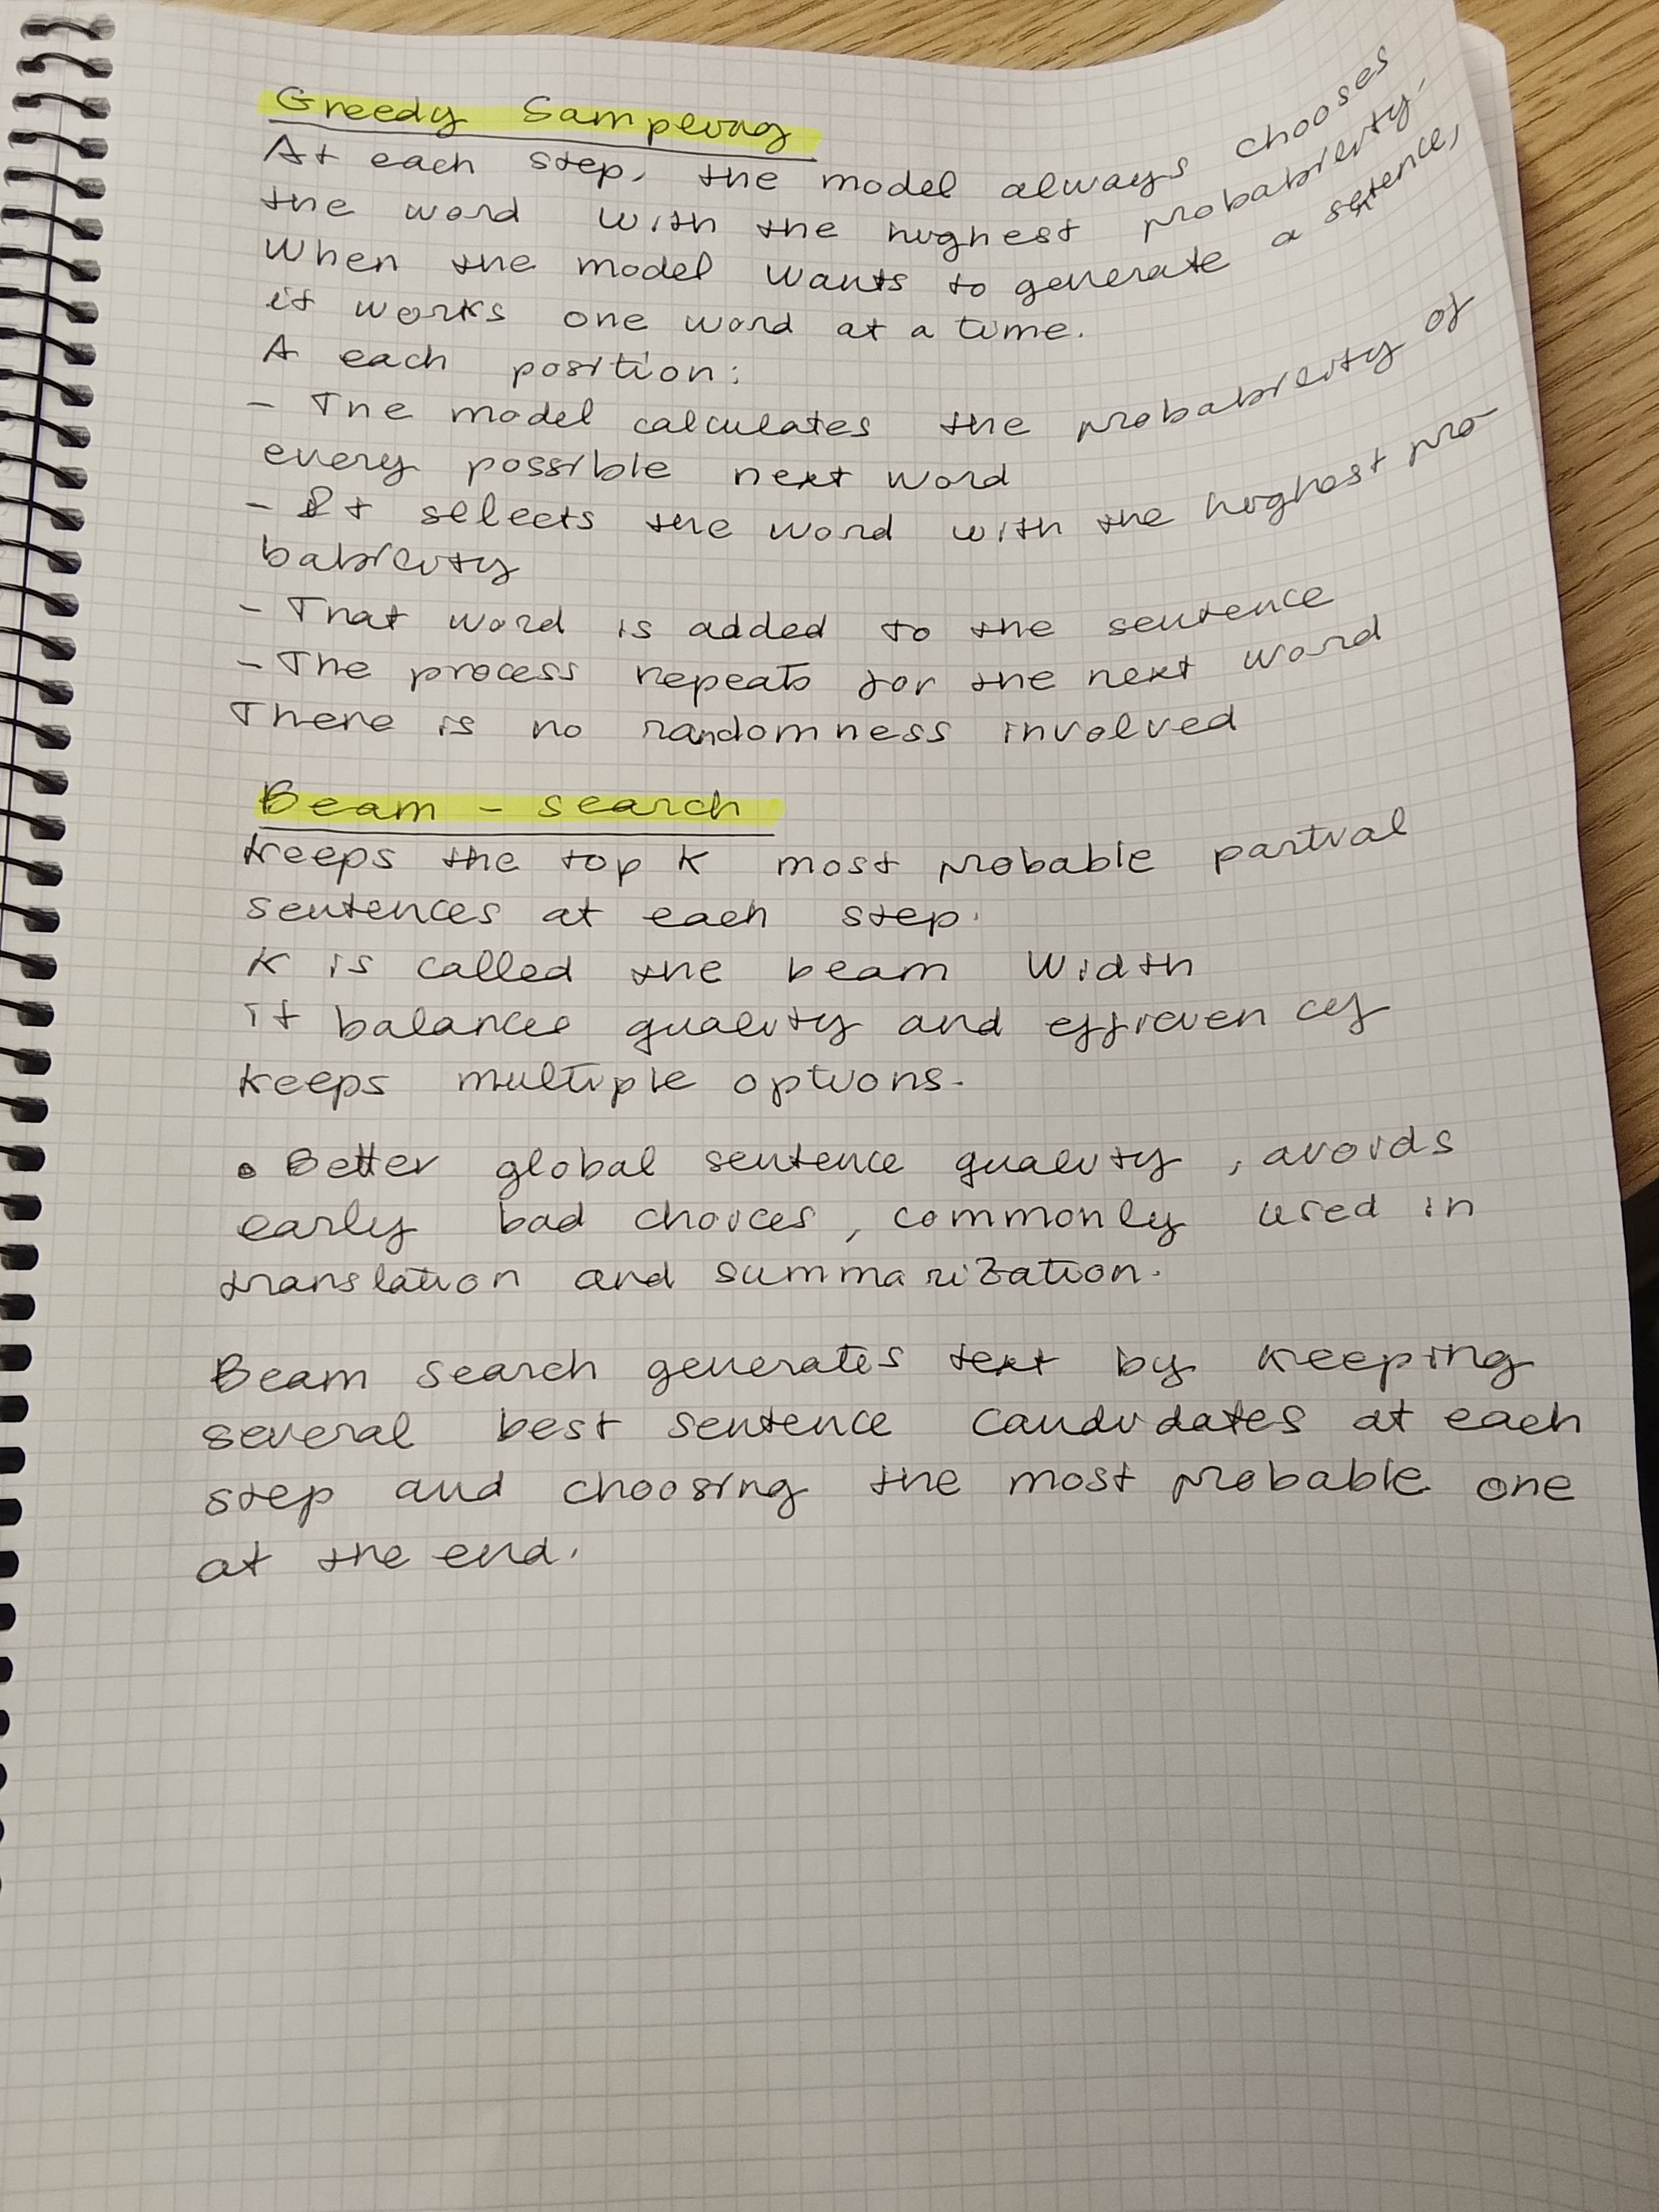 Greedy Sampling
At each step, the model always chooses
the word with the highest probability.
When the model wants to generate a sentence,
it works one word at a time.
A each position:
- The model calculates the probability of
every possible next word
- It selects the word with the highest pro-
bability
- That word is added to the sentence
- The process repeats for the next word
There is no randomness involved
Beam - search
keeps the top K most probable partial
sentences at each step.
K is called the beam width
it balances quality and efficiency
keeps multiple options.
• Better global sentence quality, avoids
early bad choices, commonly used in
translation and summarization.
Beam search generates text by keeping
several best sentence candidates at each
step and choosing the most probable one
at the end.